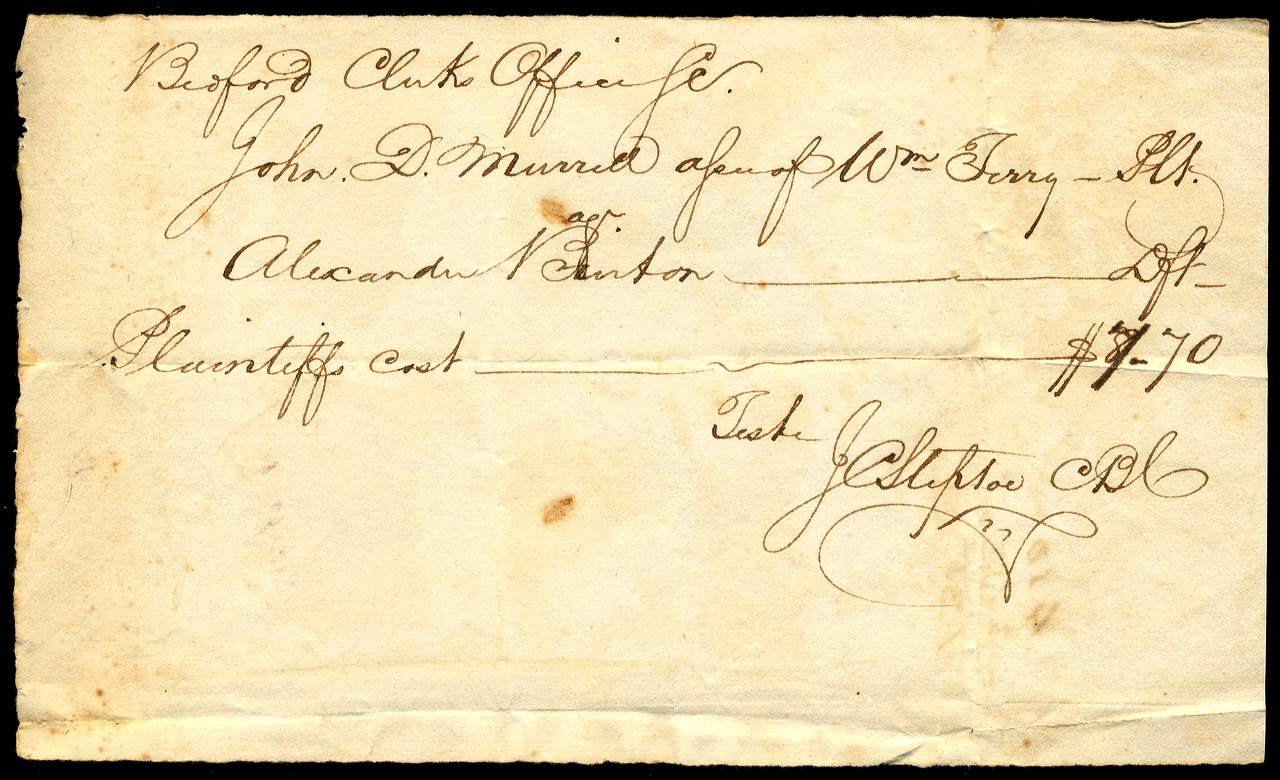 Bedford Clerks Office Sc.
John. D. Murrell assee of Wm Terry – Plt.
agt
Alexander Brinton — Dft –
Plaintiffs cost — $ 70
Teste
J C Steptoe CBC